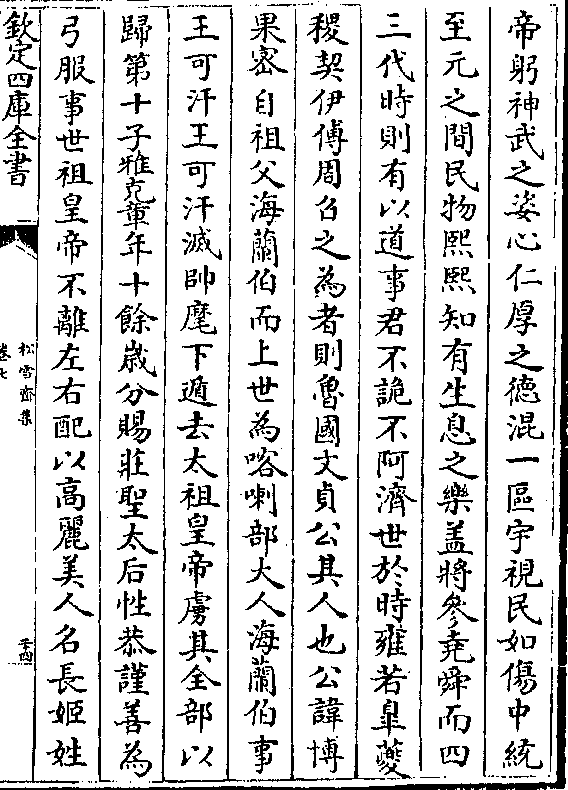 帝躬神武之姿心仁厚之德混一區宇視民如傷中統
至元之間民物熙熙知有生息之樂盖將參堯舜而四
三代時則有以道事君不詭不阿濟世於時雍若臯夔
稷契伊傅周召之為者則魯國文貞公其人也公諱博
果密自祖父海蘭伯而上世為喀喇部大人海蘭伯事
王可汗王可汗滅帥麾下遁去太祖皇帝虜其全部以
歸第十子雅克韋年十餘歳分賜莊聖太后性恭謹善為
弓服事世祖皇帝不離左右配以高麗美人名長姬姓
欽定四庫全書
松雪齋集
卷七